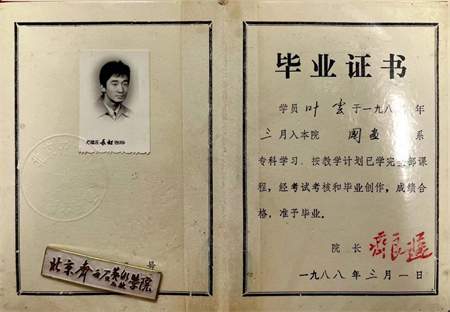 号
北京齐白石艺术学院
毕业证书
学员 叶 于一九八 年
三月入本院 国画 系
专科学习，按教学计划已学完全部课
程，经考试考核和毕业创作，成绩合
格，准予毕业。
院 长 齐良迟
一九八八年三月一日